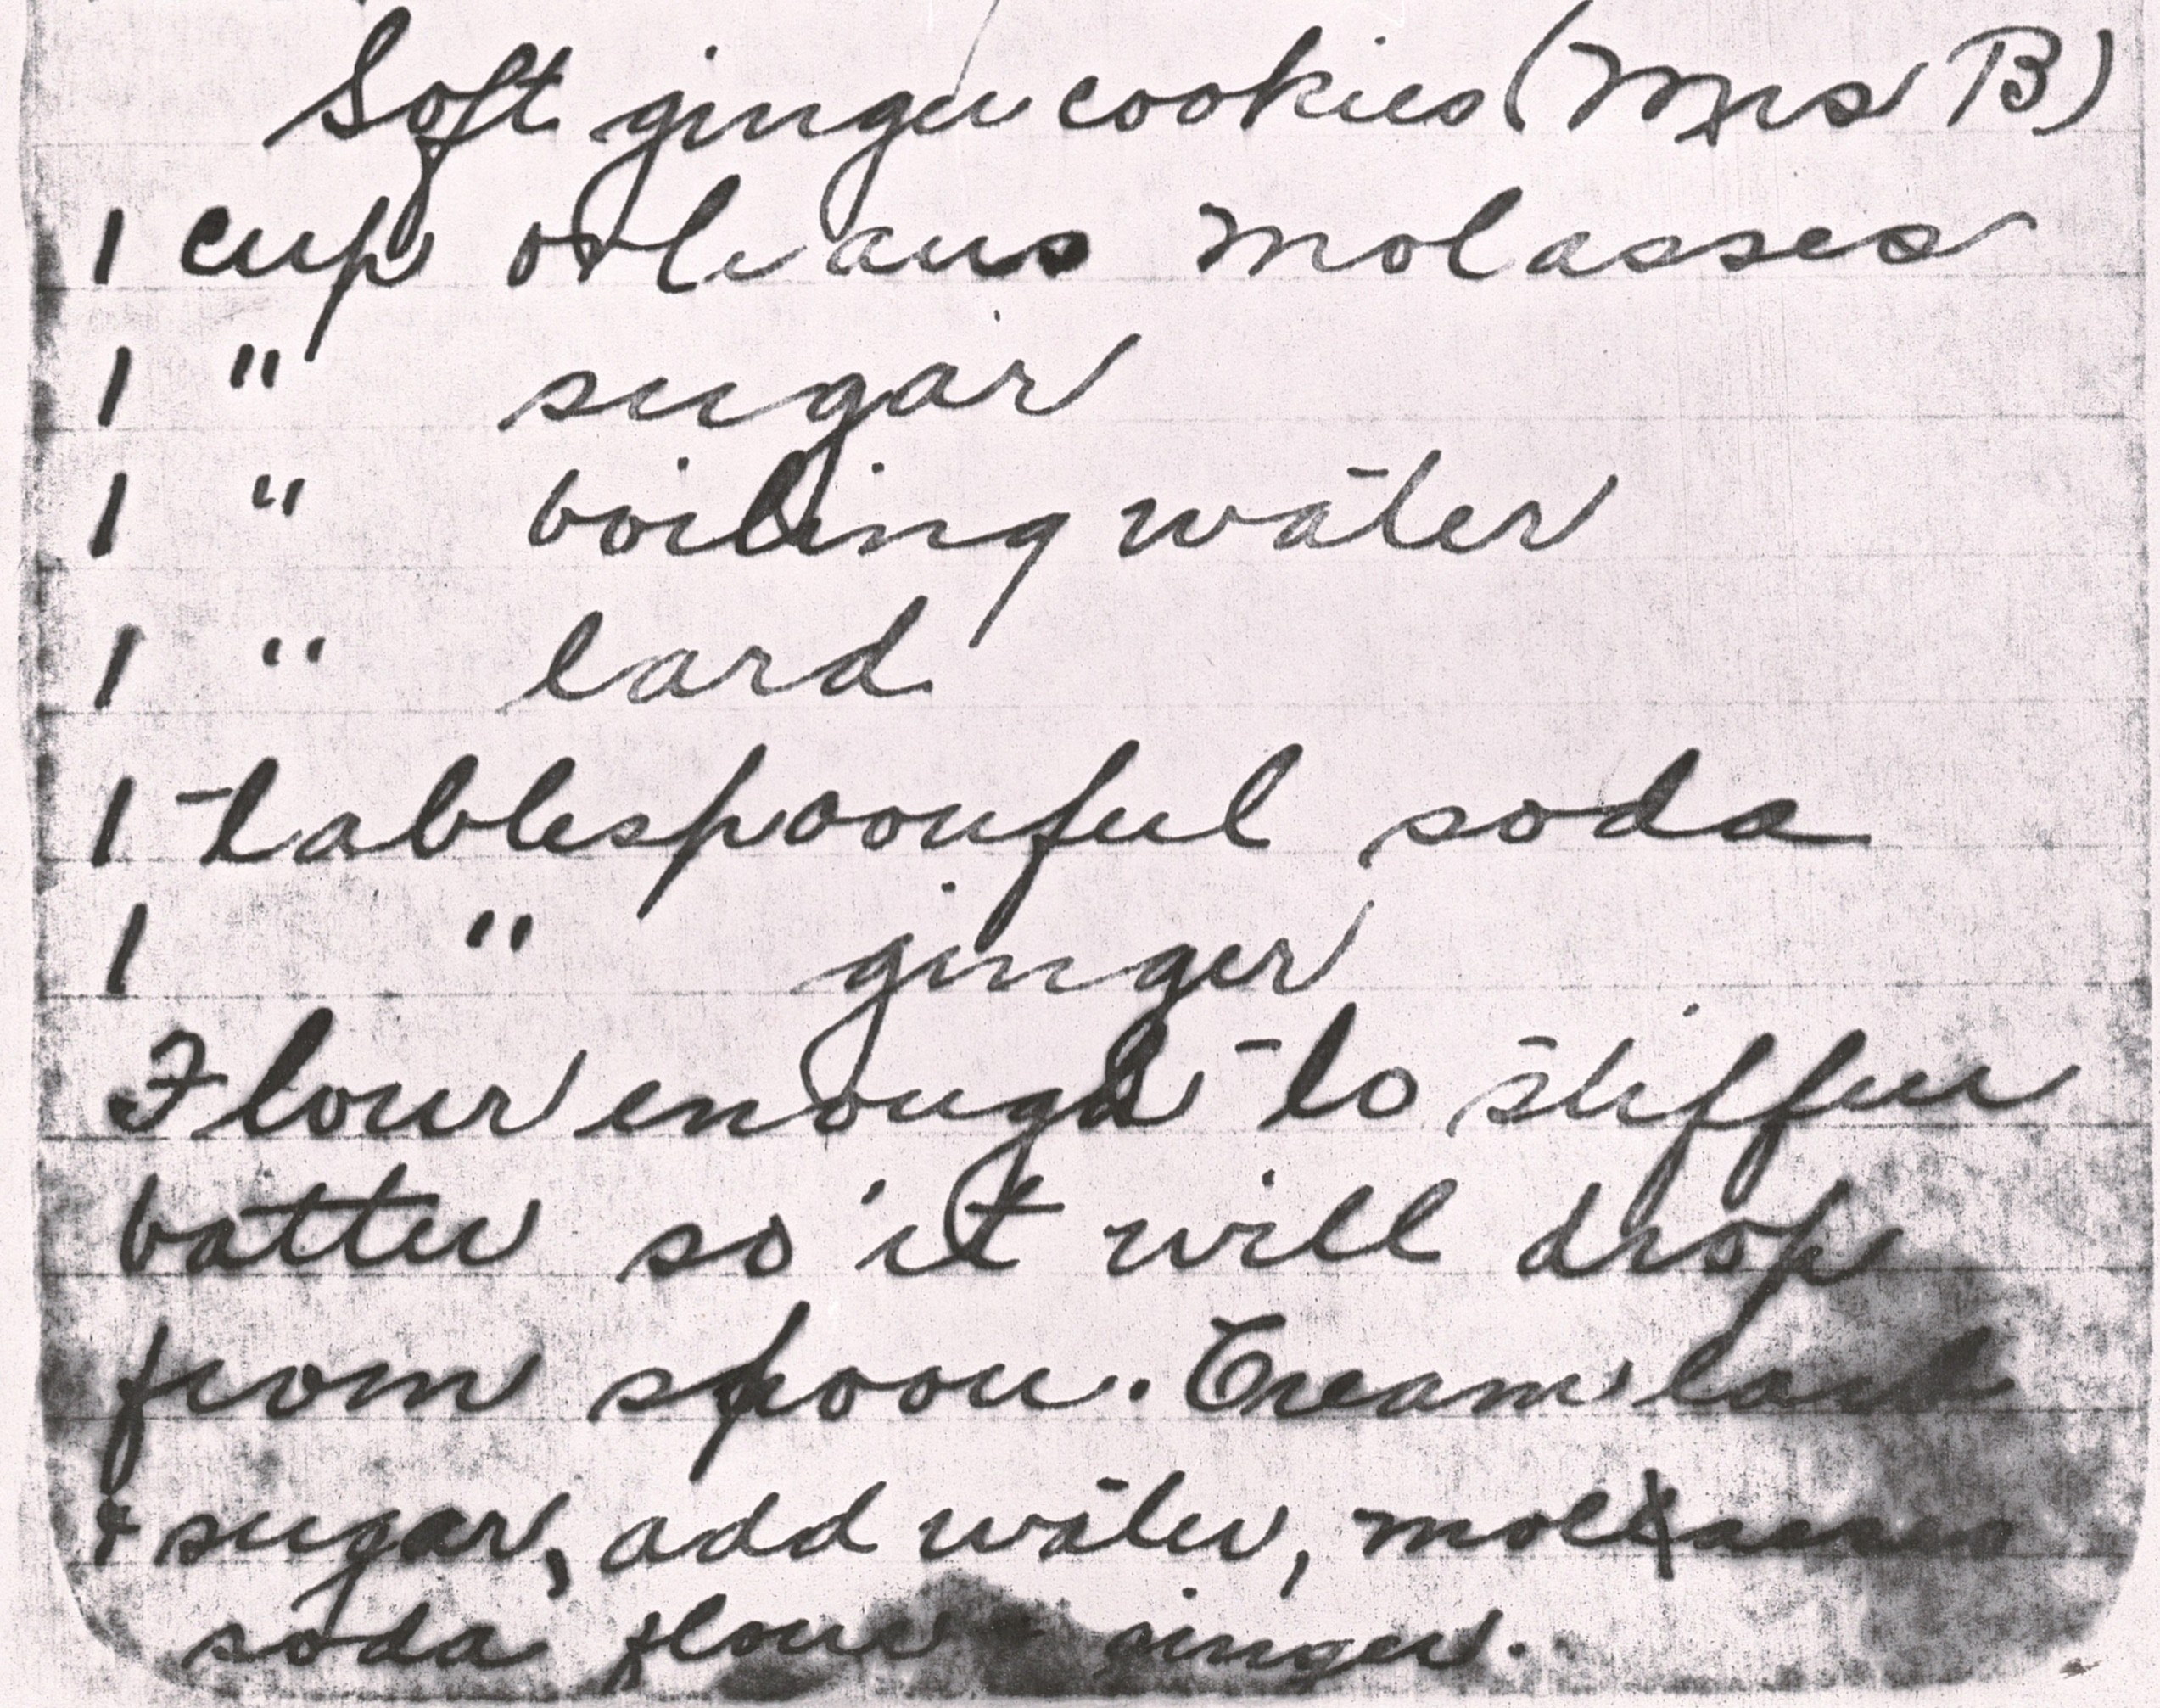 Soft ginger cookies (Mrs B)
1 cup orleans molasses
1 " sugar
1 " boiling water
1 " lard
1 tablespoonful soda
1 " ginger
Flour enough to stiffen
batter so it will drop
from spoon. Cream lard
& sugar, add water, molasses
soda flour ginger.